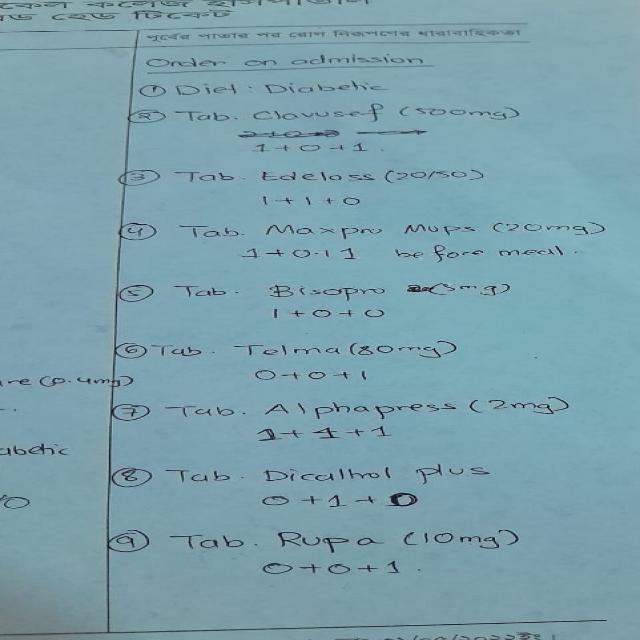 মেডিকেল কলেজ হাসপাতাল
হেড টিকেট
পূর্বের পাতার পর রোগ নিরূপণের ধারাবাহিকতা
Order on admission
① Diet : Diabetic
② Tab. Clavusef (500mg)
1+0+1.
③ Tab. Edeloss (20/50)
1+1+0
④ Tab. Maxpro Mups (20mg)
1+0+1 before meal.
⑤ Tab. Bisopro (5mg)
1+0+0
⑥ Tab. Telma (80mg)
0+0+1
(0.4mg)
⑦ Tab. Alphapress (2mg)
1+1+1
abetic
⑧ Tab. Dicaltrol plus
0+1+0
⑨ Tab. Rupa (10mg)
0+0+1.